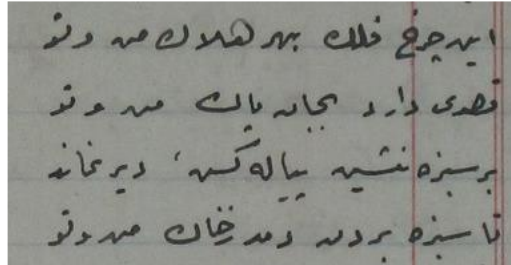 این چرخ فلک بهر هلاک من و تو
قصدی دارد بجان پاک من و تو
بر سبزه نشین پیاله کش، دیر نماند
تا سبزه بردن دمد ز خاک من و تو